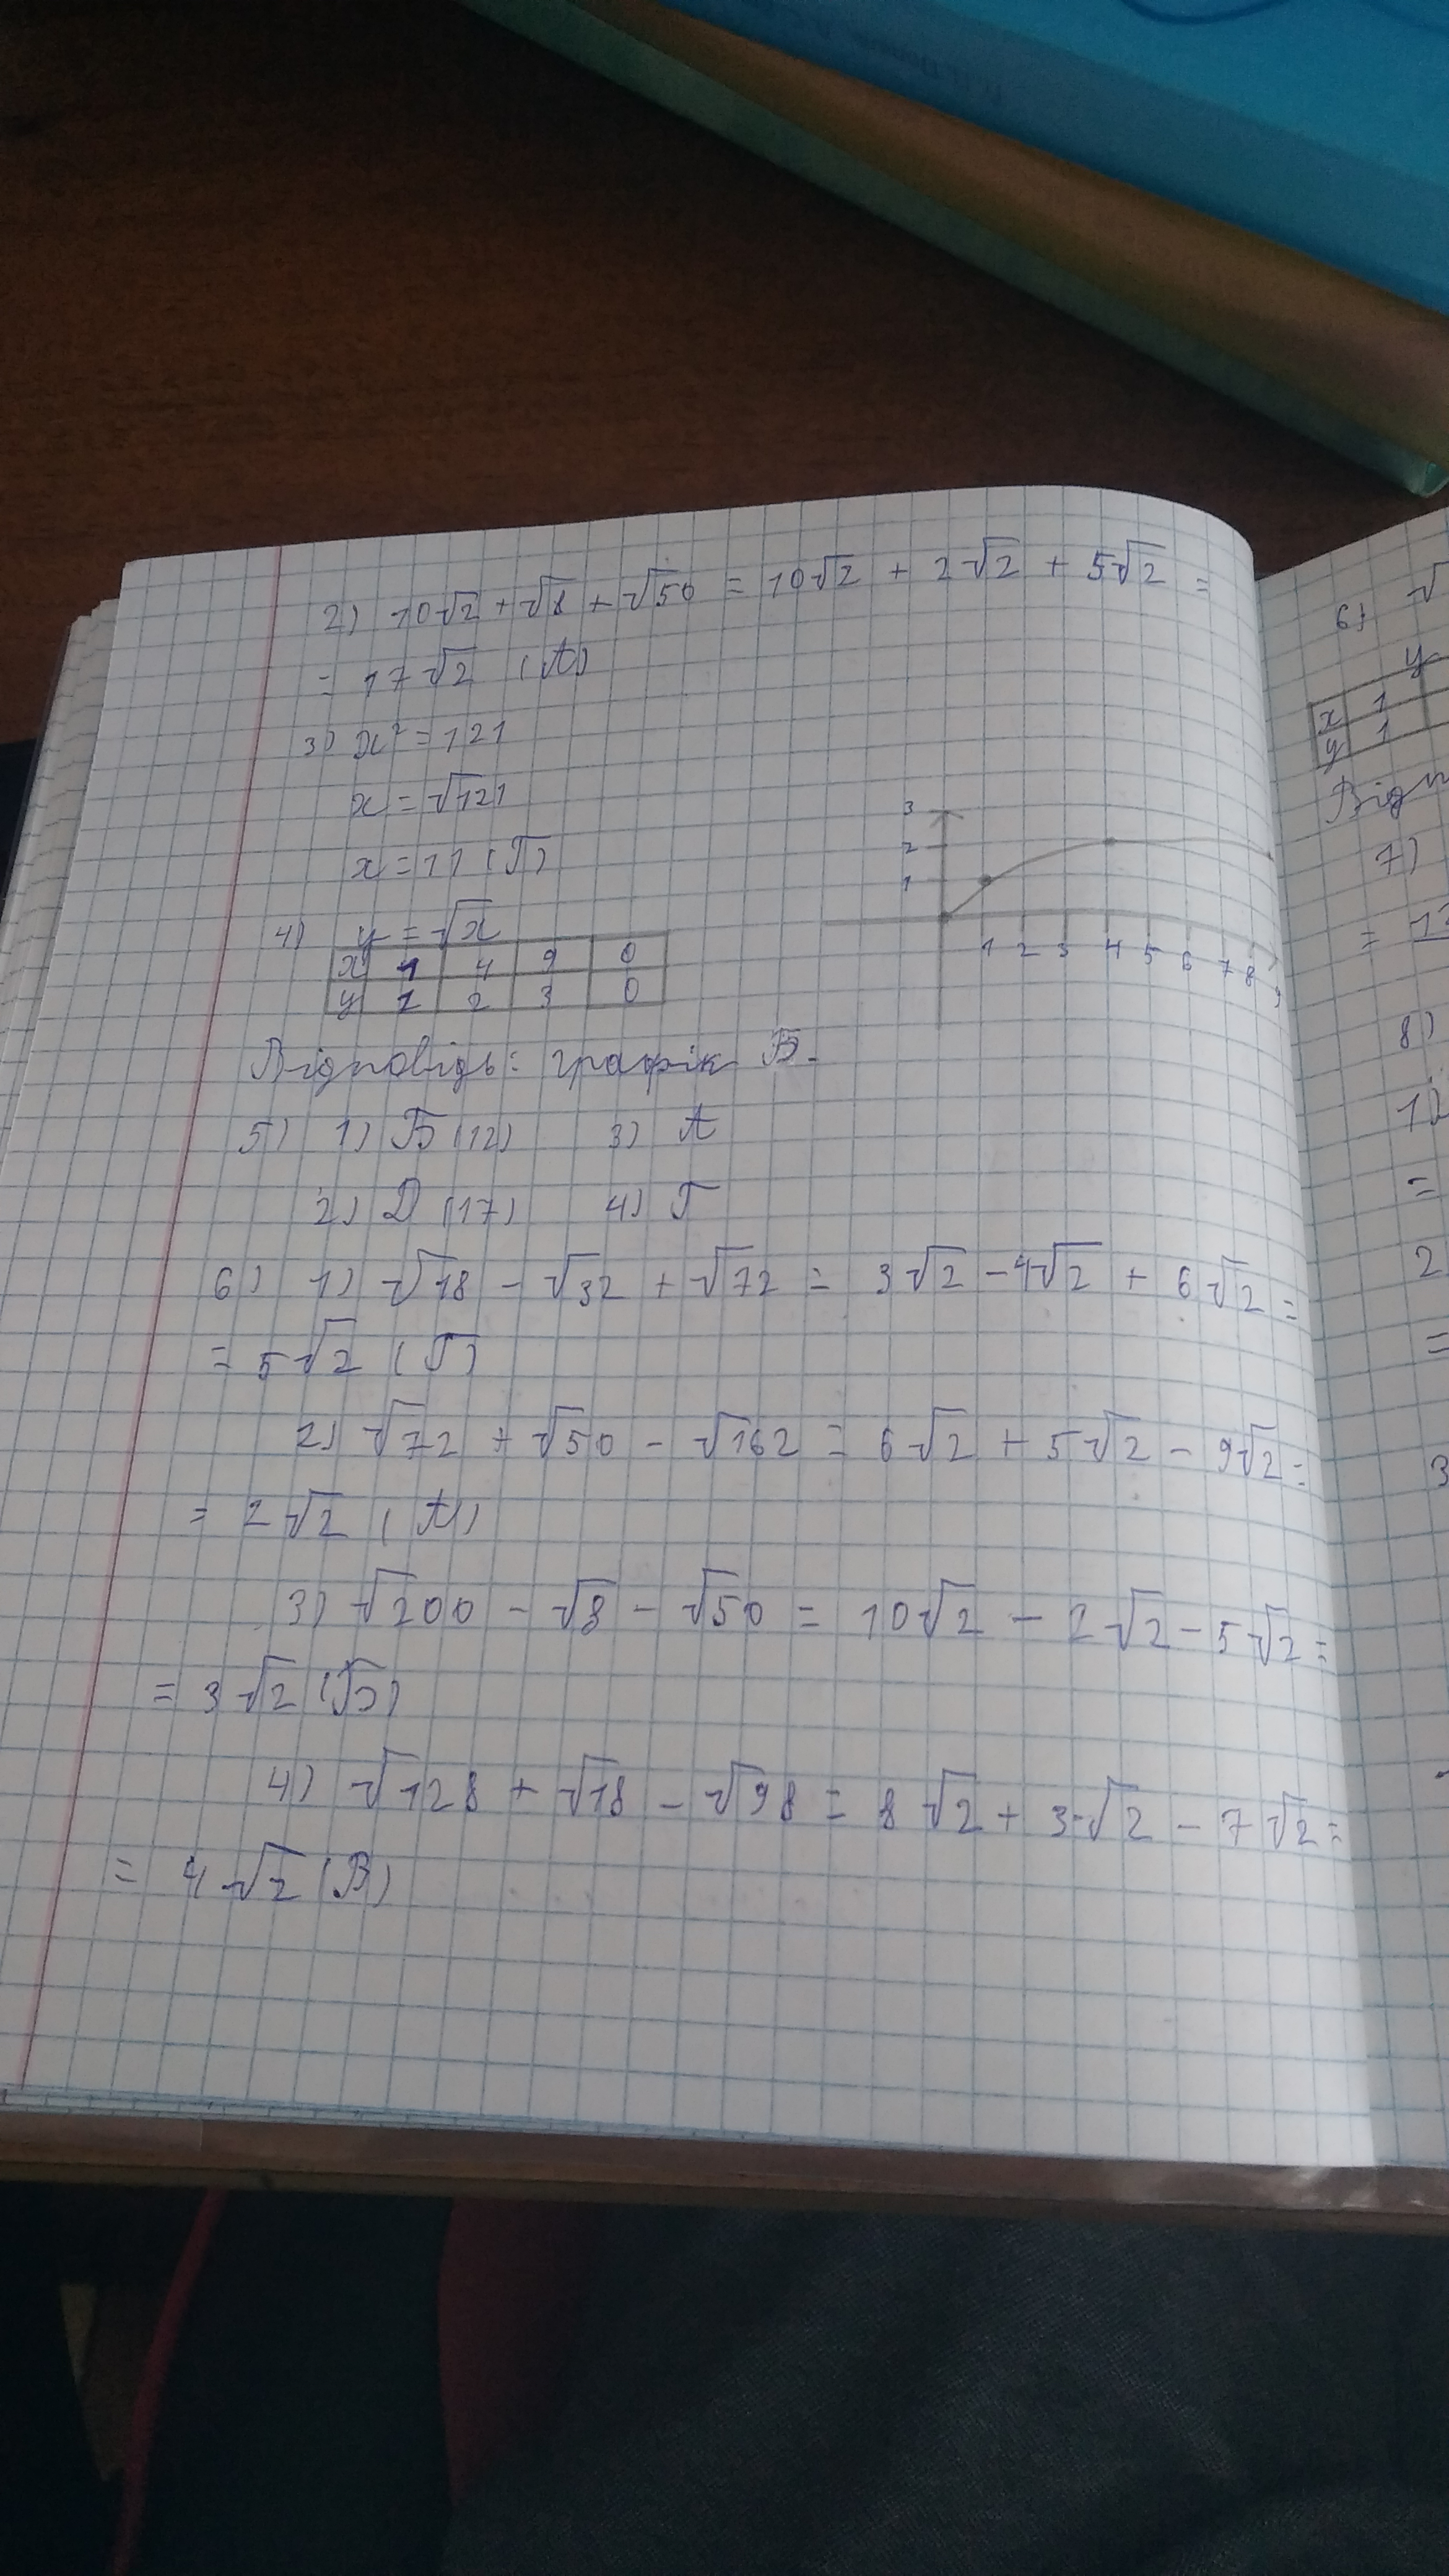 2) 10√2 + √8 + √50 = 10√2 + 2√2 + 5√2 =
= 17√2 (А)
3) x² = 121
x = √121
x = 11 (Г)
4) y = √x
x 1 4 9 0
y 1 2 3 0
3
2
1
1 2 3 4 5 6 7 8 9
Відповідь: графік Б.
5) 1) Б (12) 3) А
2) Д (17) 4) Г
6) 1) √18 - √32 + √72 = 3√2 - 4√2 + 6√2 =
= 5√2 (Г)
2) √72 + √50 - √162 = 6√2 + 5√2 - 9√2 =
= 2√2 (А)
3) √200 - √8 - √50 = 10√2 - 2√2 - 5√2 =
= 3√2 (Б)
4) √128 + √18 - √98 = 8√2 + 3√2 - 7√2 =
= 4√2 (В)
6) √
y
x 1
y 1
Відп
7)
=
8)
1)
=
2
=
3